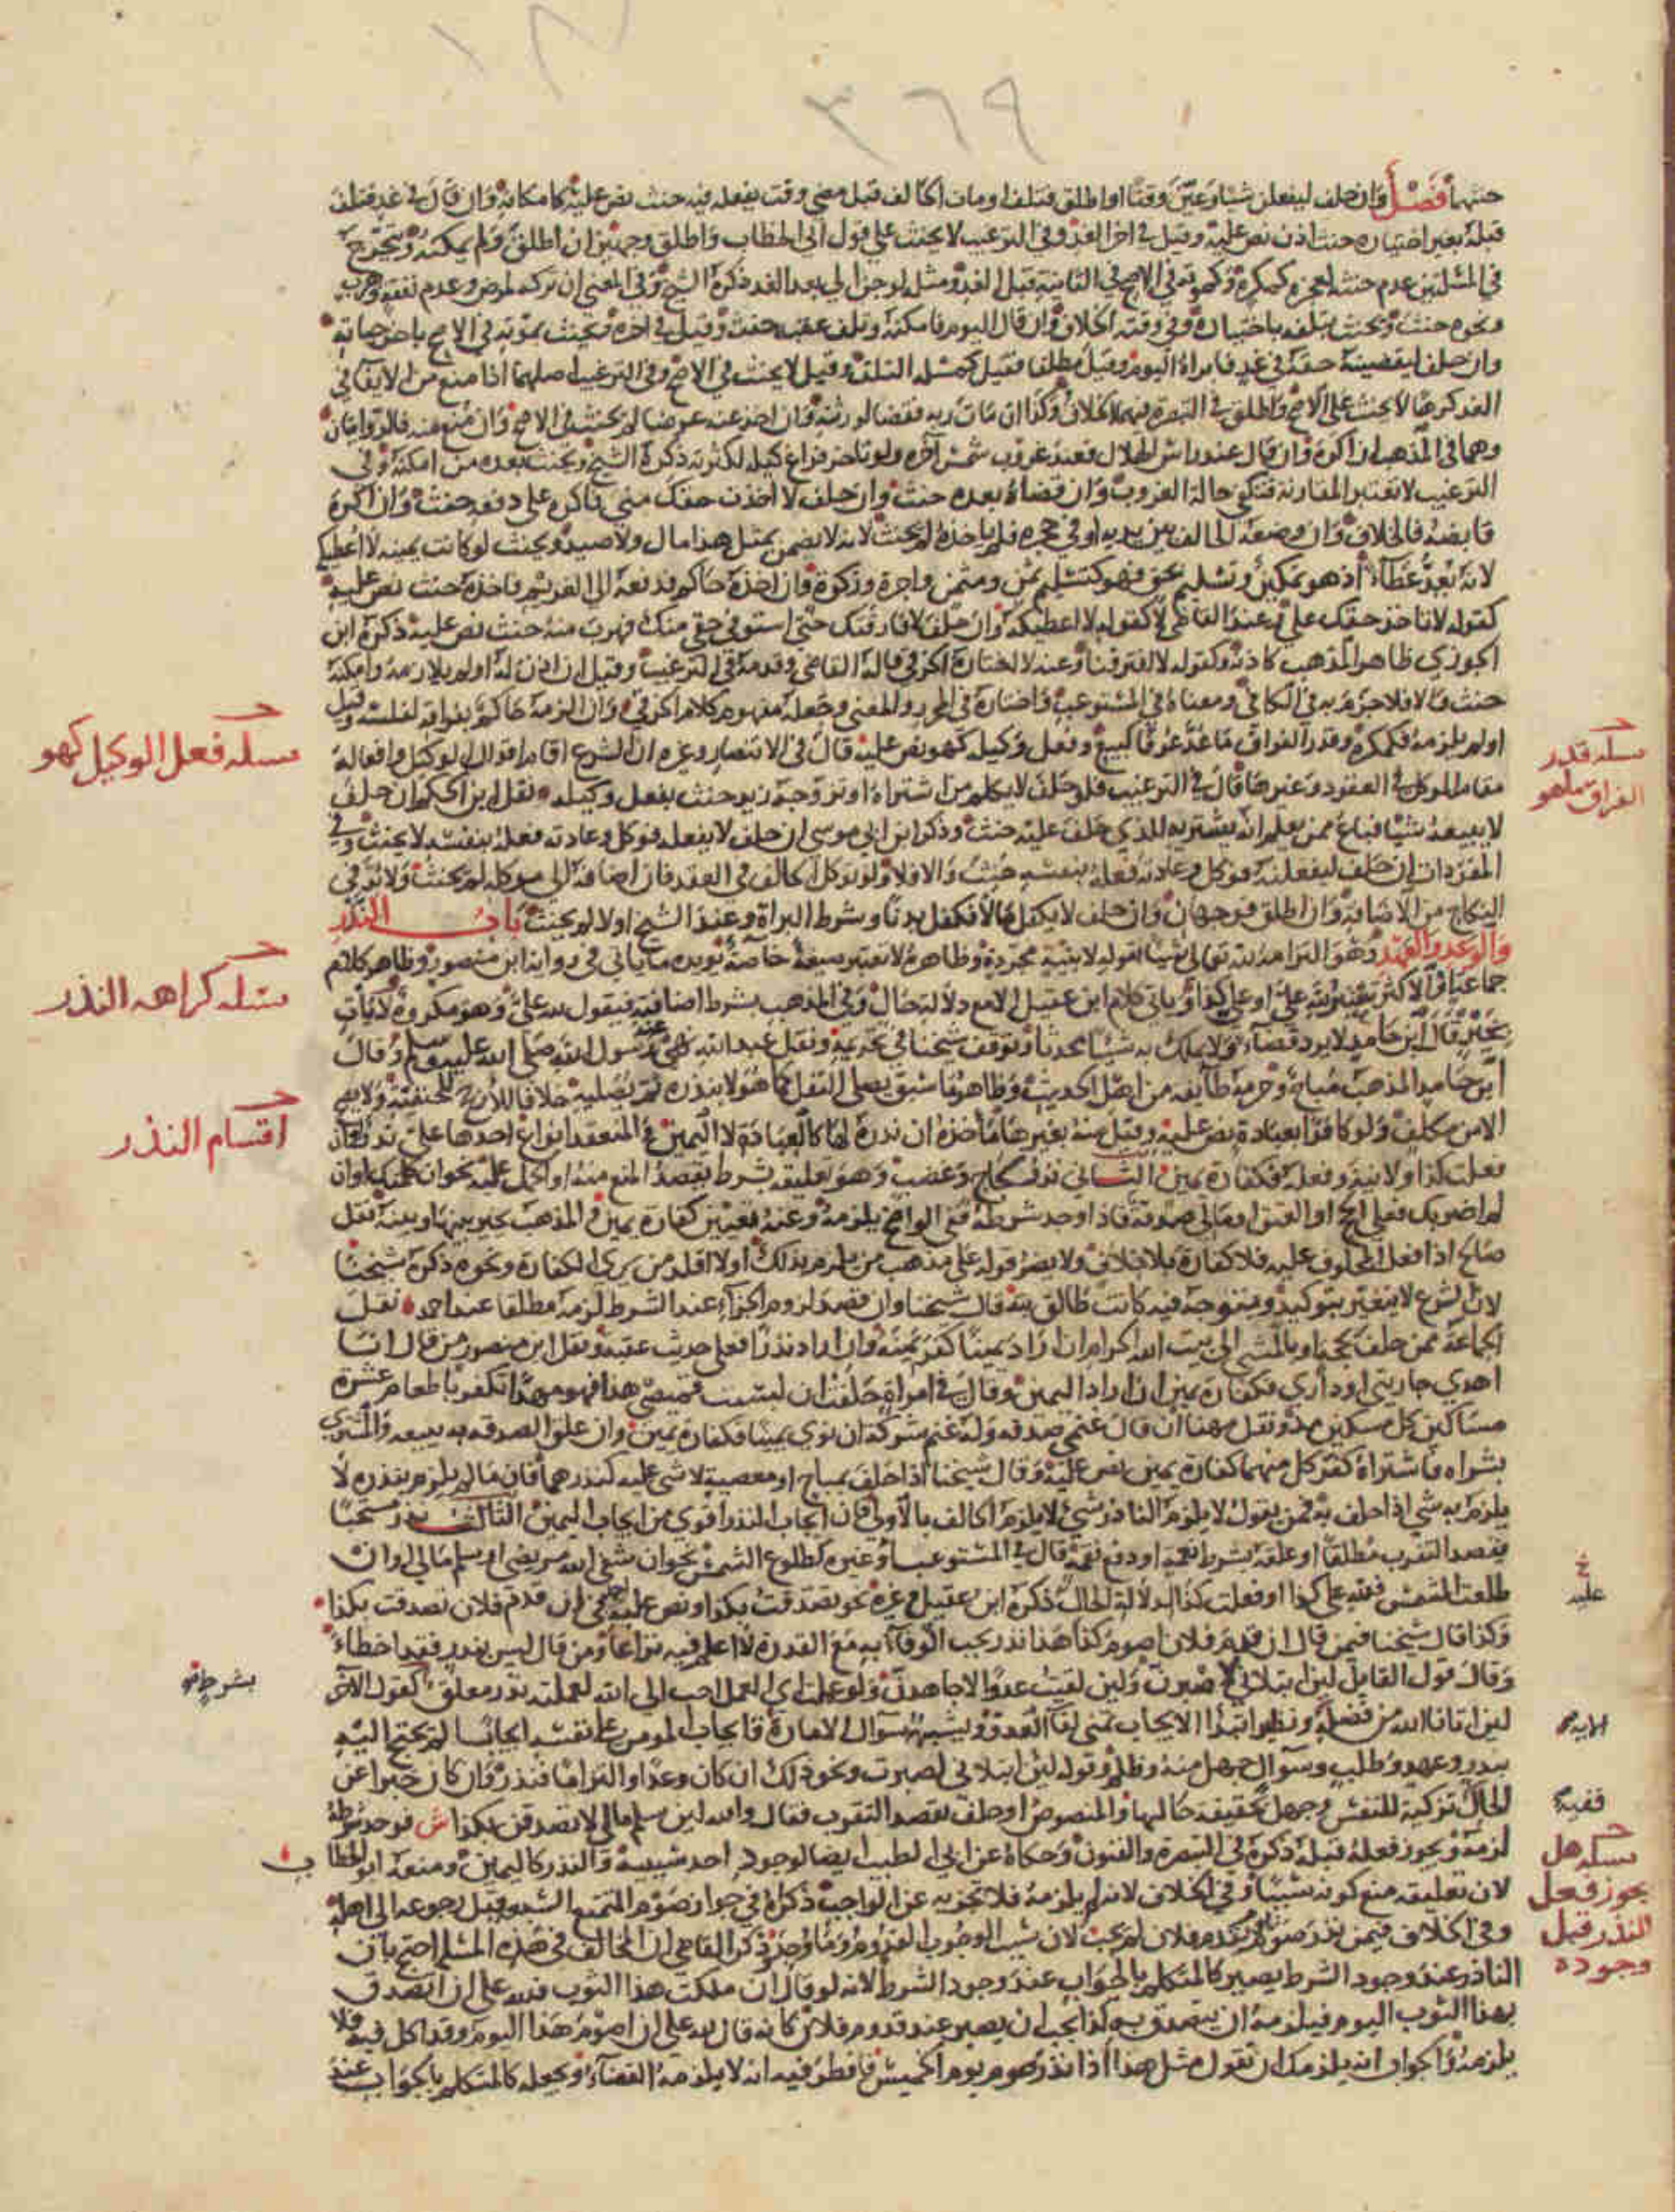 ٣٦٩
حنثهما فصل وان حلف ليفعلن شيئا وعين وقتا او اطلق فتلف او مات الحالف قبل مضي وقت يفعله فيه حنث نص عليه كامكانه وان قال في غد فتلف
قبله بغير اختياره حنث اذن نص عليه وقيل في اخر الغد وفي الترغيب لا يحنث على قول ابي الخطاب واطلق وجهين ان اطلق ولم يمكنه ويتخرج
في المسئلتين عدم حنثه لعجزه كمكره وكموته في الاصح في الثانية قبل الغد ومثله لو جن الى بعد الغد ذكره الشيخ وفي المغني ان تركه لمرض وعدم نفقة وهرب
ونحوه حنث ويحنث بتلفه باختياره وفي وقته الخلاف وان قال اليوم فامكنه وتلف عقبه حنث وقيل في اخره ويحنث بموته في الاصح باخر حياته
وان حلف ليقضينه حقه في غد فابراه اليوم وقيل مطلقا فقيل كمسئلة التلف وقيل لا يحنث في الاصح وفي الترغيب اصلهما اذا منع من الايفا في
الغد كرها لا يحنث على الاصح واطلق في التبصرة فيهما الخلاف وكذا ان مات ربه فقضا لورثته وان اخذ عنه عرضا لم يحنث في الاصح وان منع منه فالروايتان
وهما في المذهب ان اكره وان قال عند راس الهلال فعند غروب شمس اخره ولو تاخر فراغ كيله لكثرته ذكره الشيخ ويحنث بعده مع امكنه وفي
الترغيب لا تعتبر المقارنة فتكفي حالة الغروب وان قضاه بعده حنث وان حلف لا اخذت حقك مني فاكره على دفعه حنث وان اكره
قابضه فالخلاف وان وضعه الحالف بين يديه او في حجره فلم ياخذه لم يحنث لانه لا يضمن بمثل هذا مال ولا صيد ويحنث لو كانت يمينه لا اعطيك
لانه يعد عطاء اذ هو تمكين وتسليم بحق فهو كتسليم ثمن ومثمن واجرة وزكوة وان اخذه حاكم فدفعه الى الغريم فاخذه حنث نص عليه
كقوله لا تاخذ حقك علي وعند القاضي لا كقوله لا اعطيكه وان حلف لا فارقتك حتى استوفي حقي منك فهرب منه حنث نص عليه ذكره ابن
الجوزي ظاهر المذهب كاذنه وكقوله لا افترقنا وعنه لا اختاره الخرقي قاله القاضي وقدمه في الترغيب وقيل ان اذن له او لم يلازمه وامكنه
حنث والا فلا جزم به في الكافي ومعناه في المستوعب واختاره في المحرر والمغني وجعله مفهوم كلام الخرقي وان الزمه حاكم بفراقه لفلسه وقيل
او لم يلزمه فكمكره وقدر الفراق ما عد عرفا كبيع وفعل وكيله كهو نص عليه قال في الانتصار وغيره ان الشرع اقام اقوال الوكيل وافعاله
مقام الموكل في العقود وغيرها قال في الترغيب فلو حلف لا يكلم من اشتراه او تزوجه زيد حنث بفعل وكيله نقل ابن الحكم ان حلف
لا يبيعه شيئا فباع ممن يعلم انه يشتريه للذي حلف عليه حنث وذكر ابن ابي موسى ان حلف لا يفعله فوكل وعادته فعله بنفسه لا يحنث وفي
المفردات ان حلف ليفعلنه فوكل وعادته فعله بنفسه حنث والا فلا ولو توكل الحالف في العقد فان اضافه الى موكله لم يحنث ولا بد في
النكاح من الاضافة وان اطلق فوجهان وان حلف لا يكفل مالا فكفل بدنا وشرط البراة وعند الشيخ او لا لم يحنث باب النذر
والوعد والعهد وهو التزامه لله تعالى شيئا بقوله لا بنيته مجردة وظاهره لا تعتبر صيغة خاصة يؤيده ما ياتي في رواية ابن منصور وظاهر كلام
جماعة او الاكثر تعتبر لله علي او علي كذا وياتي كلام ابن عقيل الا مع دلالة حال وفي المذهب بشرط اضافته فيقول لله علي وهو مكروه لا يات
بخير قال ابن حامد لا يرد قضاء ولا يملك به شيئا محدثا وتوقف شيخنا في تحريمه ونقل عبد الله نهى عنه رسول الله صلى الله عليه وسلم وقال
ابن حامد المذهب مباح وحرمه طائفة من اهل الحديث وظاهر ما سبق يصلي النفل كما هو لا ينذره ثم يصليه خلافا للارجح للحنفية ولا يصح
الا من مكلف ولو كافرا بعبادة نص عليه وقيل منه بغيرها ماخذه ان نذره لها كالعبادة لا اليمين والمنعقد انواع احدها علي نذر او ان
فعلت كذا ولا نية وفعله فكفارة يمين الثاني نذر لجاج وغضب وهو تعليقه بشرط بقصد المنع منه او الحمل عليه نحو ان كلمتك او ان
لم اضربك فعلي الحج او العتق او مالي صدقة فاذا وجد شرطه ففي الواضح يلزمه وعنه تعين كفارة يمين والمذهب يخير بينها وبينه نقل
صالح اذا فعل المحلوف عليه فلا كفارة بلا خلاف ولا يضر قوله على مذهب من يلزم بذلك او لا اقلد من يرى الكفارة ونحوه ذكره شيخنا
لان الشرع لا يتغير بتوكيد ويتوجه فيه كانت طالق بتة قال شيخنا وان قصد لزوم الجزاء عند الشرط لزمه مطلقا عند احمد نقل
الجماعة فمن حلف بحجة او بالمشي الى بيت الله الحرام ان اراد يمينا كفر يمينه وان اراد نذرا فعلى حديث عقبة ونقل ابن منصور من قال انا
اهدي جاريتي او داري فكفارة يمين ان اراد اليمين وقال في امراة حلفت ان لبست قميصي هذا فهو مهدا تكفر باطعام عشرة
مساكين كل مسكين مد ونقل مهنا ان قال غنمي صدقة وله غنم شركة ان نوى يمينا فكفارة يمين وان علق الصدقة به ببيعه والمشتري
بشراه فاشتراه كفر كل منهما كفارة يمين نص عليه وقال شيخنا اذا حلف بمباح او معصية لا شي عليه كنذرهما فان ما لم يلزم بنذره لا
يلزم به شي اذا حلف به فمن يقول لا يلزم الناذر شي لا يلزم الحالف بالاولى فان ايجاب النذر اقوى من ايجاب اليمين الثالث نذر مستحبا
بقصد التقرب مطلقا او علقه بشرط نعمة او دفع نقمة قال في المستوعب وغيره كطلوع الشمس نحو ان شفى الله مريضي او سلم مالي او ان
طلعت الشمس فلله علي كذا او فعلت كذا لدلالة الحال ذكره ابن عقيل وغيره نحو تصدقت بكذا ونص عليه احمد في ان قدم فلان تصدقت بكذا
وكذا قال شيخنا فيمن قال ان قدم فلان اصوم كذا هذا نذر يجب الوفاء به مع القدرة لا اعلم فيه نزاعا ومن قال ليس بنذر فقد اخطاء
وقال قول القايل لين ابتلاني لاصبرن ولين لقيت عدوا لاجاهدن ولو علمت اي العمل احب الى الله لعملته نذر معلق كقول الاخر
لين اتانا الله من فضله ونظير ابتدا الايجاب تمني لقا العدو ويشبهه سوال الامارة فايجاب المومن على نفسه ايجابا لم يحتج اليه
بنذر وعهد وطلب وسوال جهل منه وظلم وقوله لين ابتلاني لصبرت ونحو ذلك ان كان وعدا والتزاما فنذر وان كان خبرا عن
الحال تزكية للنفس وجهل بحقيقة حالها والمنصوص او حلف بقصد التقرب فقال والله لين سلم مالي لاتصدقن بكذا ش فوجد شرطه
لزمه ويجوز فعله قبله ذكره في التبصرة والفنون وحكاه عن ابي الطيب ايضا لوجود احد سببيه والنذر كاليمين ومنعه ابو الخطاب
لان تعليقه منع كونه سببا وفي الخلاف لانه لم يلزمه فلا تجزيه عن الواجب ذكراه في جواز صوم المتمتع السبعة قبل رجوعه الى اهله
وفي الخلاف فيمن نذر صوم يوم يقدم فلان لم يجب لان سبب الوجوب القدوم وما وجد وذكر القاضي ان المخالف في هذه المسئلة احتج بان
الناذر عند وجود الشرط يصير كالمتكلم بالجواب عند وجود الشرط لانه لو قال ان ملكت هذا الثوب فلله علي ان اتصدق
بهذا الثوب اليوم فيلزمه ان يتصدق به كذا يجب ان يصير عند قدوم فلان كانه قال لله علي ان اصوم هذا اليوم وقد اكل فيه فلا
يلزمه والجواب انه يلزمك ان تقول مثل هذا اذا نذر صوم يوم الخميس فافطر فيه انه لا يلزمه القضاء وتجعله كالمتكلم بالجواب عند
مسله فعل الوكيل كهو
مسله قدر
الفراق ما هو
مسله كراهه النذر
اقسام النذر
عليه
بشر حافي
الاية
ففيه
مسله هل
يجوز فعل
النذر قبل
وجوده